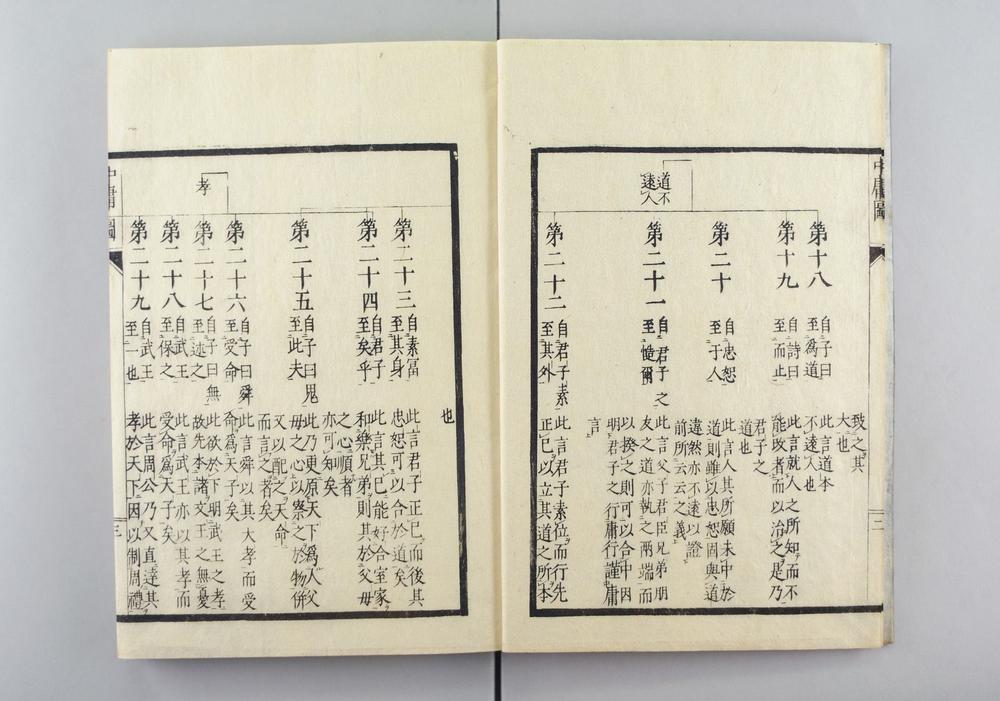 中庸圖
致之其
大也
道不
遠人
第十八
自子曰
至爲道
此言道本
不遠人也
第十九
自詩曰
至而止
此言就人之所知而不
能改者而以治之是乃
君子之
道也
第二十
自忠恕
至于人
此言人其所願未中於
道則雖以忠恕固與道
違然亦不遠以證
前所云云之義
第二十一
自君子之
至慥爾
此言父子君臣兄弟朋
友之道亦執之兩端而
以揆之則可以合中因
明君子之行庸行謹庸
言
第二十二
自君子素
至其外
此言君子素位而行先
正己以立其道之所本
二
也
第二十三
自素富
至其身
此言君子正己而後其
忠恕可以合於道矣
第二十四
自君子
至矣乎
此言其己能好合室家
和樂兄弟則其於父母
之心順者
亦可知矣
第二十五
自子曰鬼
至此夫
此乃更原天下爲人父
母之心以察之於物併
又以配之天命
而言之者矣
孝
第二十六
自子曰舜
至受命
此言舜以其大孝而受
命爲天子矣
第二十七
自子曰無
至述之
此欲於下明武王之孝
故先本諸文王之無憂
第二十八
自武王
至保之
此言武王亦以其孝而
受命爲天子矣
第二十九
自武王
至一也
此言周公乃又直達其
孝於天下因以制周禮
中庸圖
三